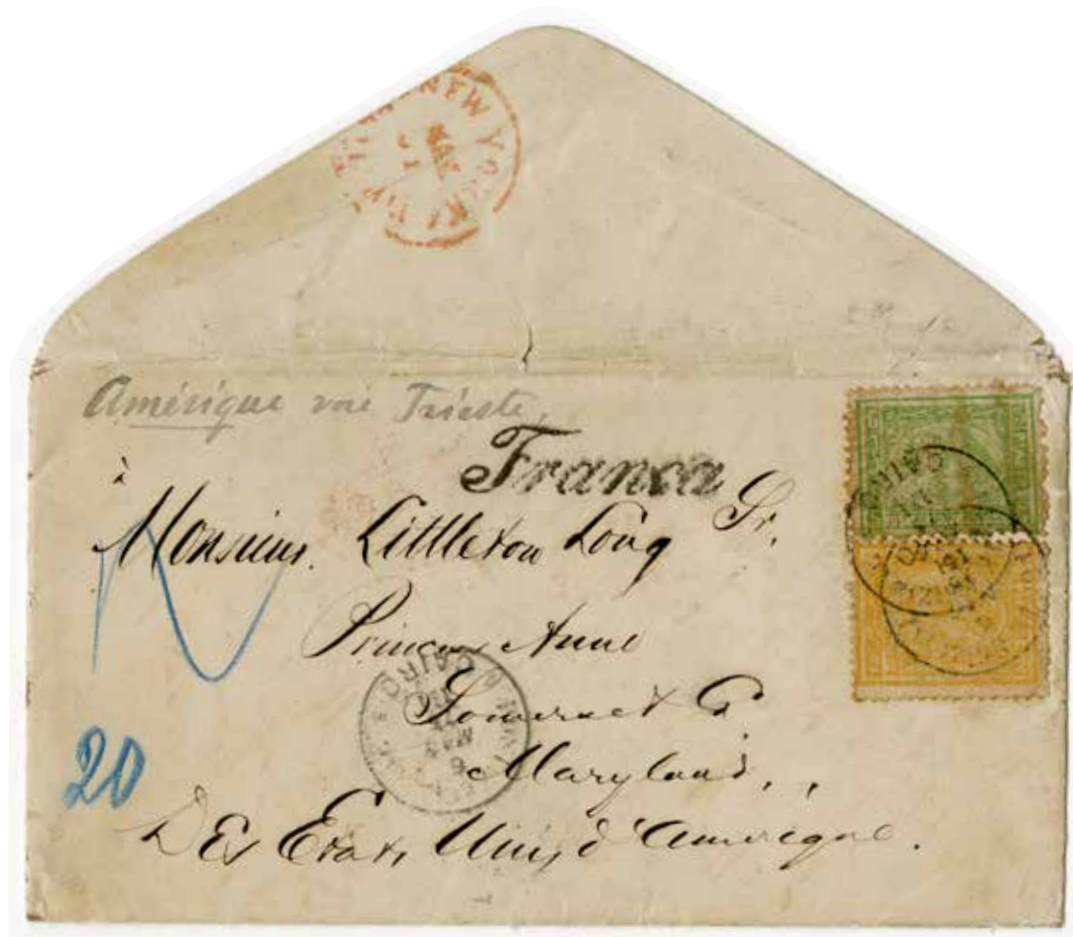 NEW YORK
MAY
Amérique voie Trieste,
Franca
à
Monsieur. Littleton Long Sr.
Princess Anne
Somerset Co
CAIRO
MAR
Maryland,,
20
Des Etats Unis d'Amerique.
CAIRO